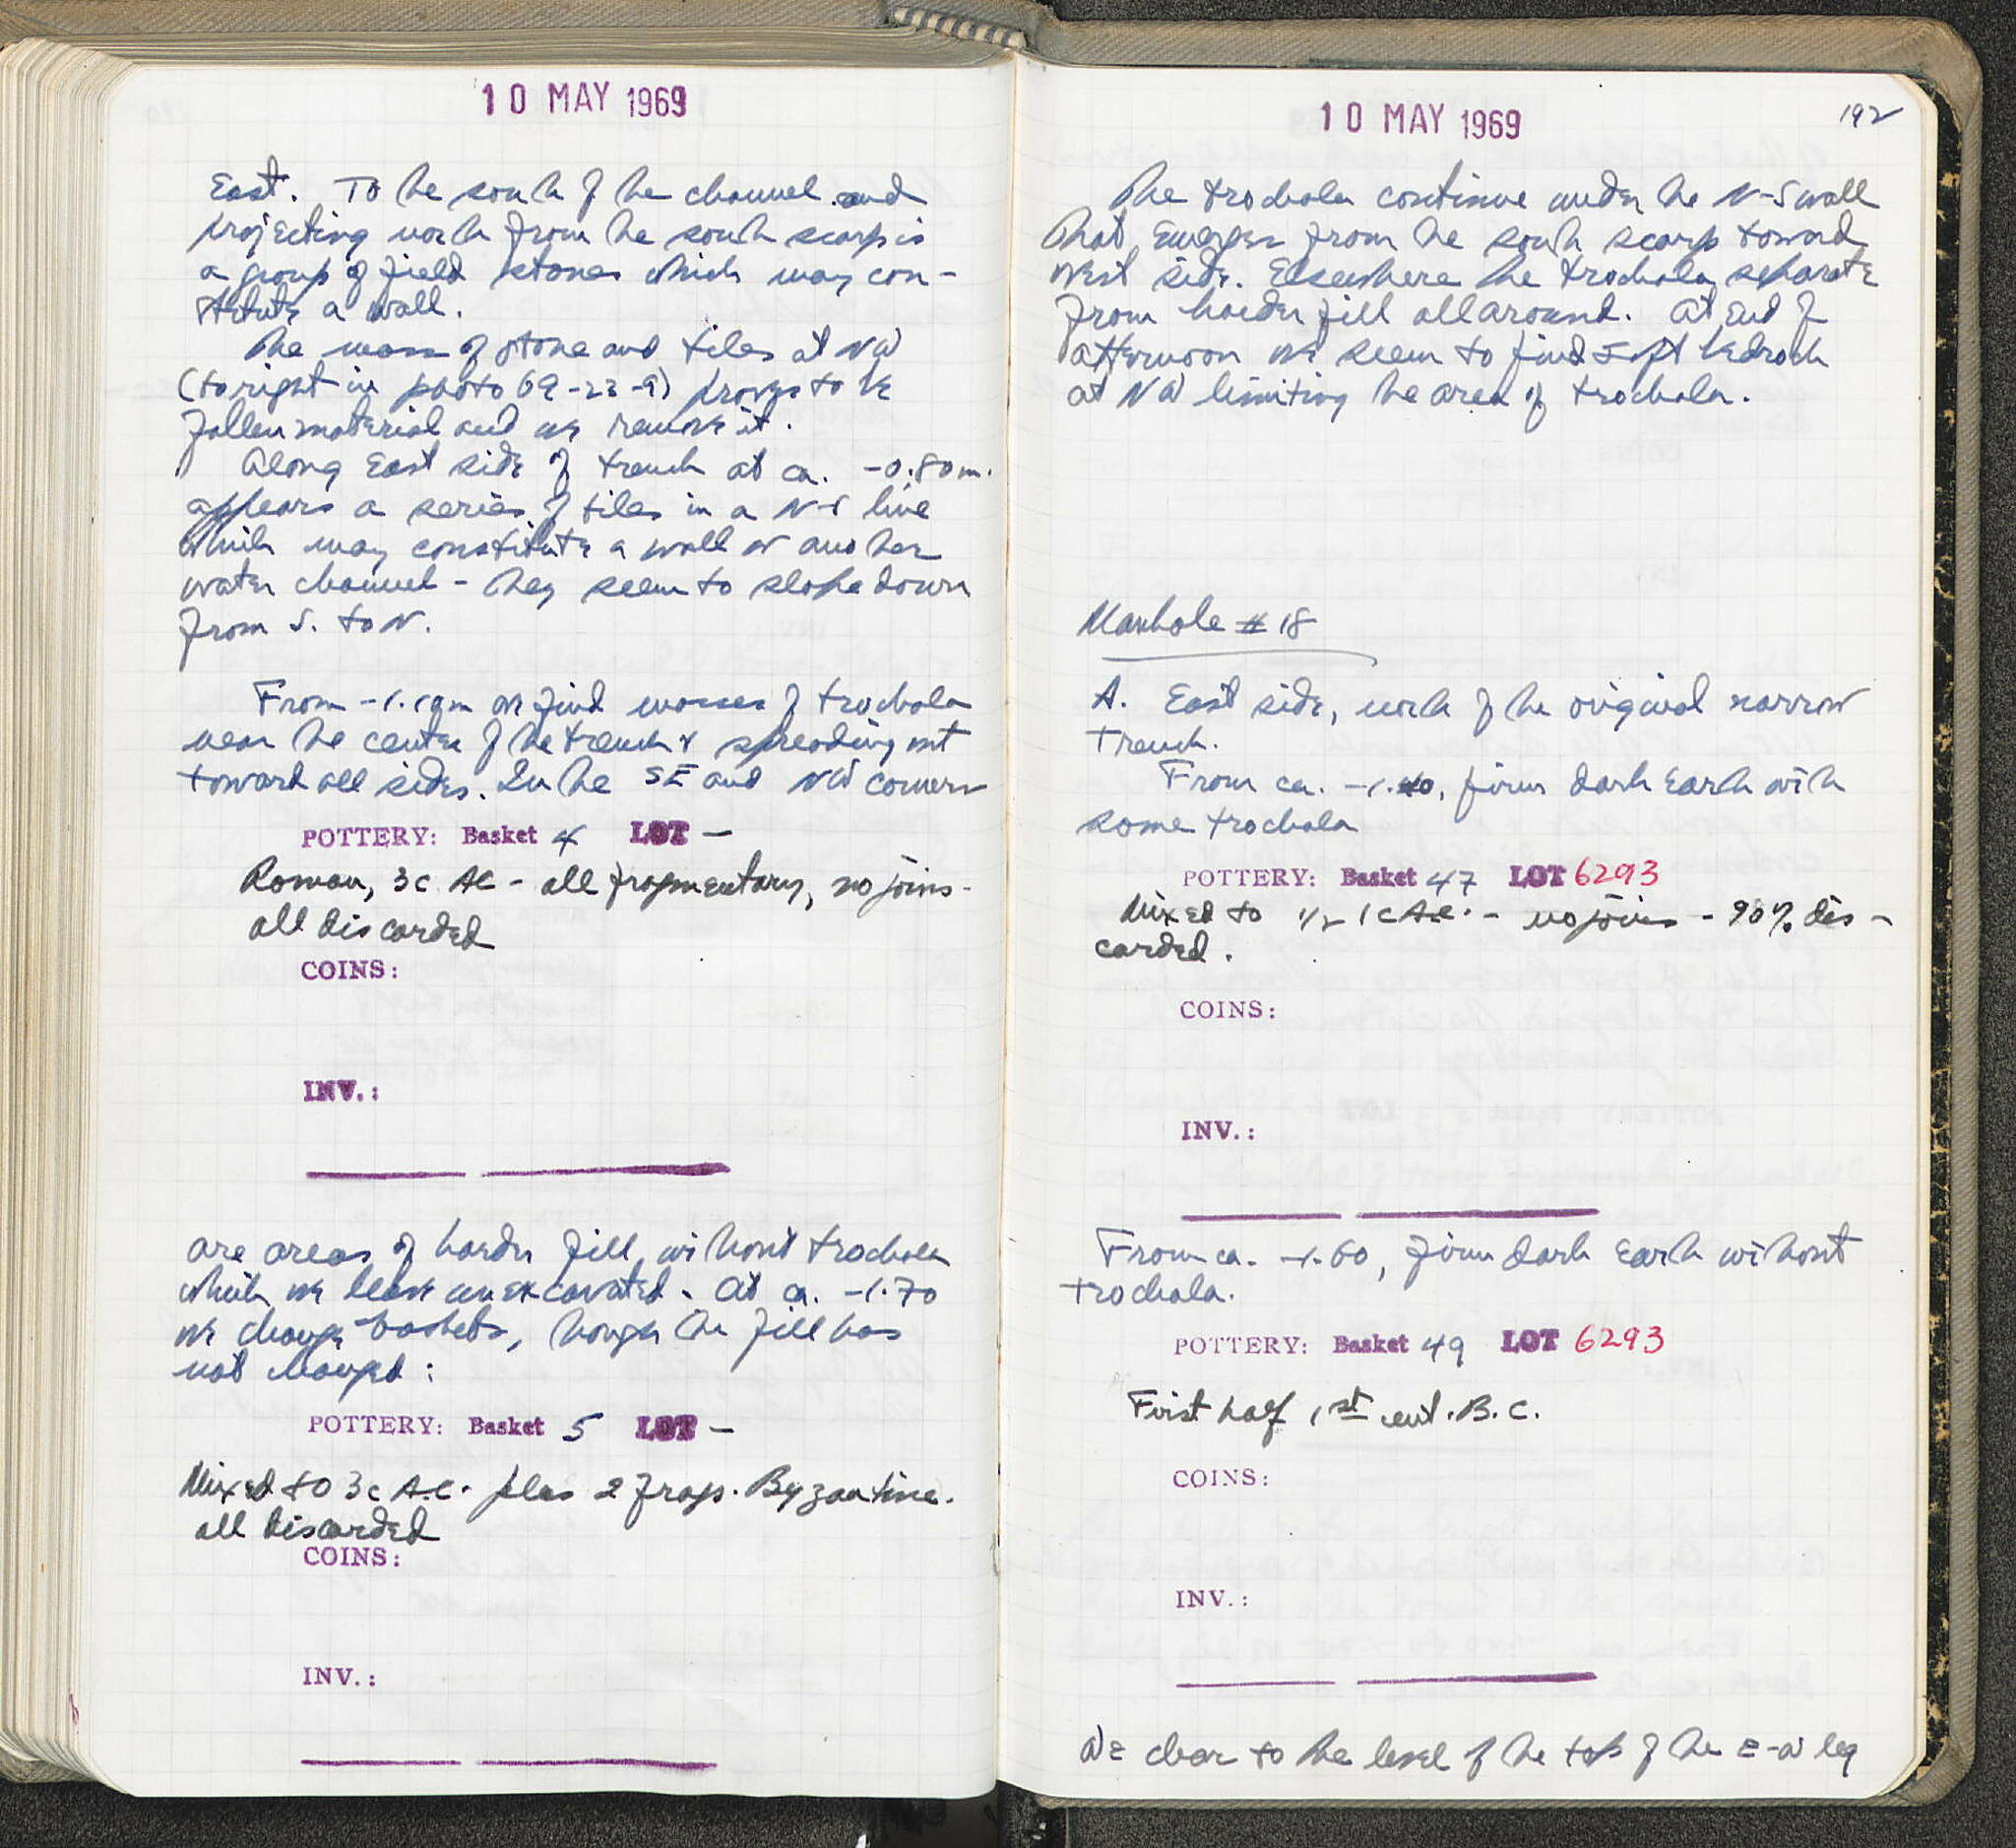 10 MAY 1969
East. To the south of the channel and
projecting north from the south scarp is
a group of field stones which may con-
stitute a wall.
The mass of stone and tiles at NW
(to right in photo 69-23-9) proves to be
fallen material and we remove it.
Along East side of trench at ca. -0.80m.
appears a series of tiles in a N-S line
which may constitute a wall or another
water channel - they seem to slope down
from S. to N.
From -1.10m we find masses of trochala
near the center of the trench & spreading out
toward all sides. In the SE and NW corners
POTTERY: Basket 4 LOT —
Roman, 3c AC - all fragmentary, no joins -
all discarded
COINS:
INV.:
are areas of harder fill, without trochala
which we leave unexcavated. At ca. -1.70
we change baskets, though the fill has
not changed:
POTTERY: Basket 5 LOT —
Mixed to 3c A.C. plus 2 frags. Byzantine.
all discarded
COINS:
INV.:
10 MAY 1969
192
The trochala continue under the N-S wall
that emerges from the south scarp toward
west side. Elsewhere the trochala separate
from harder fill all around. At end of
afternoon we seem to find soft bedrock
at NW limiting the area of trochala.
Manhole # 18
A. East side, north of the original narrow
trench.
From ca. -1.40, firm dark earth with
some trochala
POTTERY: Basket 47 LOT 6293
Mixed to 1/2 1c A.C. - no joins - 90% dis-
carded.
COINS:
INV.:
From ca. -1.60, firm dark earth without
trochala.
POTTERY: Basket 49 LOT 6293
First half 1st cent. B.C.
COINS:
INV.:
We clear to the level of the top of the E-W leg